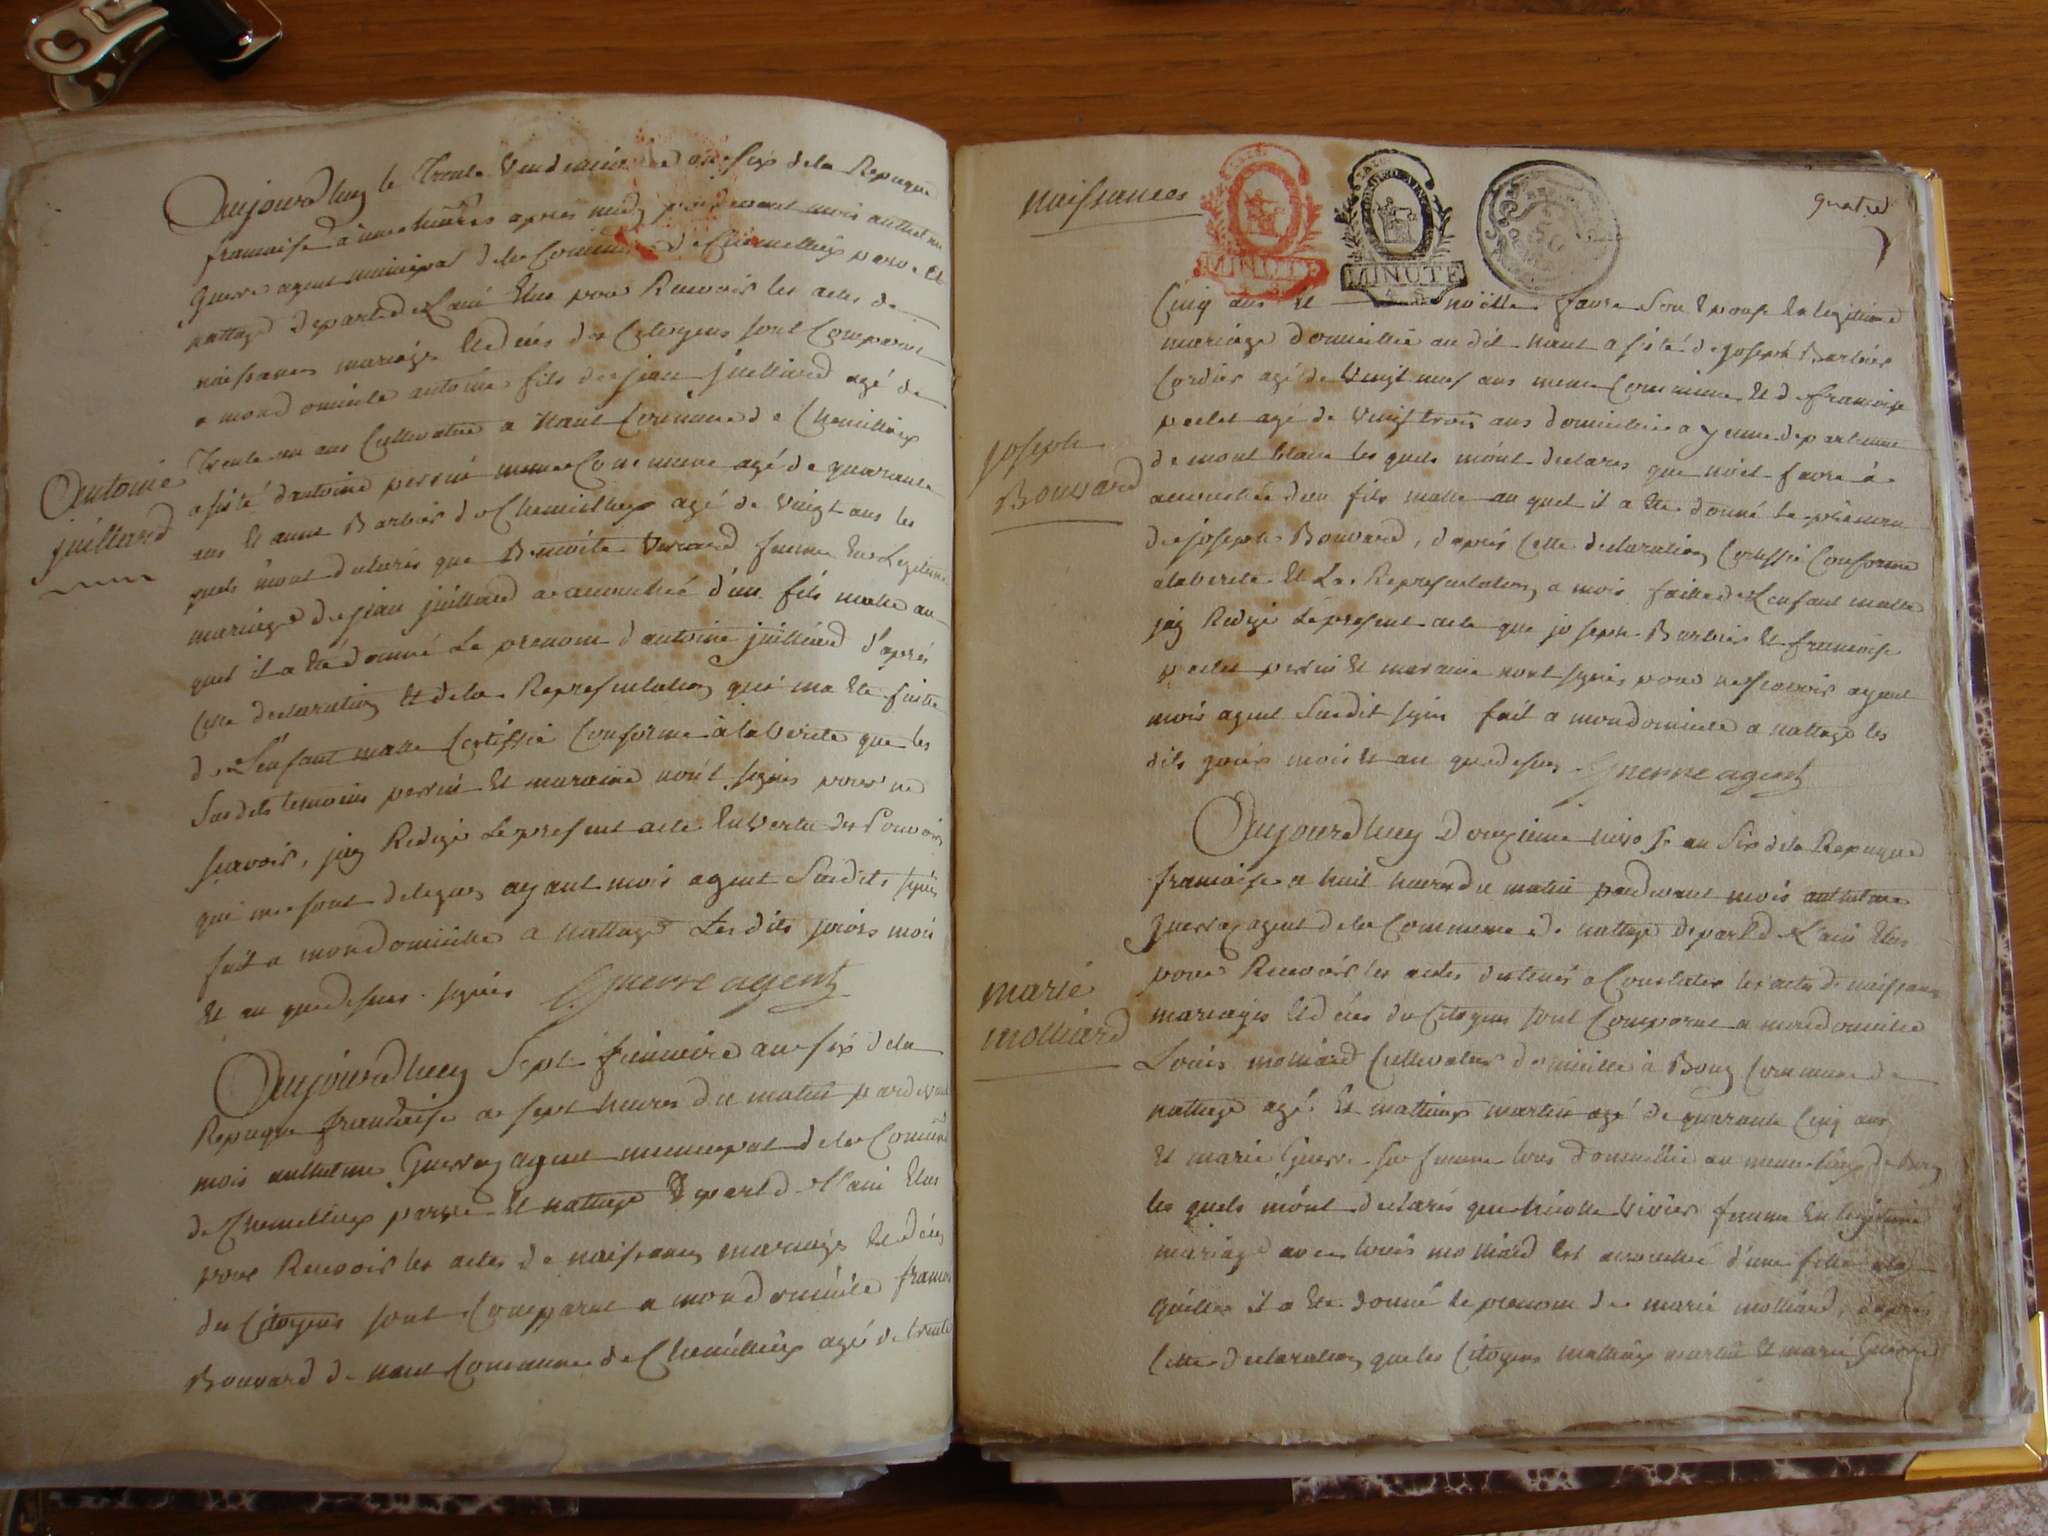 Aujourdhuy le Trente Vendemiaire an six dela Repuque
francaise a une heures apres midy pardevant mois anthelme
Guerre agent municipal dela Comune de Chemellieu parve Et
nattage depart de Lain Elus pour Recevoir les actes de
naissances mariage Et deces des Citoyens sont Comparut
a mon domicile antoine fils de jean juilliard agé de
Trente un ans Cultivateur a nant Commune de Chemillieu
asisté dantoine perrin meme Commune agé de quarante
ans Et anne Barbier de Chemillieu agé de Vingt ans les
quels mont declarés que Benoite femme En Legitime
mariage de jean juilliard a accouchée d'un fils malle au
quel il a Eté donné Le prenom d'antoine juilliard d'après
Cette declaration Et dela Representation qui ma Ete faitte
de L'enfant malle Certiffié Conforme a la Verité que les
Susdits temoins perrin Et maraine nont signés pour ne
scavoir, jay Redigé Le present acte En Vertu des Pouvoirs
qui me sont delegues ayant mois agent Susdits signés
fait a mon domicille a nattage Les dits jours mois
Et an que dessus . signés Guerre agent
Antoine
juilliard
Aujourdhuy Sept frimaire an six dela
Repuque francaise a sept heures du matin pardevant
mois anthelme Guerre agent municipal dela Comune
de Chemellieu parve Et nattage Depart de Lain Elus
pour Recevoir les actes de naissances mariages Et deces
des Citoyens sont Comparut a mon domicile francois
Bouvard de nant Commune de Chemillieu agé de trente
naissances
MINUTE
MINUTE
quatre
Cinq ans Et noëlle favre Son Epouse En legitime
mariage domicillié au dit nant asisté de joseph Barbier
Cordier agé de Vingt neuf ans meme Commune Et de francoise
poclet agé de Vingt trois ans domicilliée a yenne departement
de mont blanc les quels mônt declarés que noël favre à
accouchée dun fils malle au quel il a Eté donné le prénom
de joseph Bouvard, d'après Cette declaration Certiffié Conforme
a la Verité Et La Representation a mois faitte de Lenfant malle
jay Redigé Le present acte que joseph Barbier Et francoise
poclet perrin Et maraine nont signés pour ne scavoir ayant
mois agent Susdit signé fait a mon domicile a nattage les
dits jours mois Et an que dessus . Guerre agent
joseph
Bouvard
Aujourdhuy Douzieme nivose an Six dela Repuque
francaise a huit heures du matin pardevant mois anthelme
Guerre agent dela Commune de nattage Depart de Lain Elus
pour Recevoir les actes destinés a Constater les actes de naissances
mariages Et deces des Citoyens sont Comparut a mon domicile
Louis molliard Cultivateur domicille à Bong Commune de
nattage agé Et mathieu martin agé de quarante Cinq ans
Et marie Guerre sa femme tous domicillié au meme lieu de Bong
les quels mônt declarés que nicolle Vivier femme En legitime
mariage avec louis molliard Est accouchée d'une fille a la
quelle il a Eté donné le prenom de marie molliard, d'apres
Cette declaration que les Citoyens mathieu martin Et marie Guerre
marie
molliard